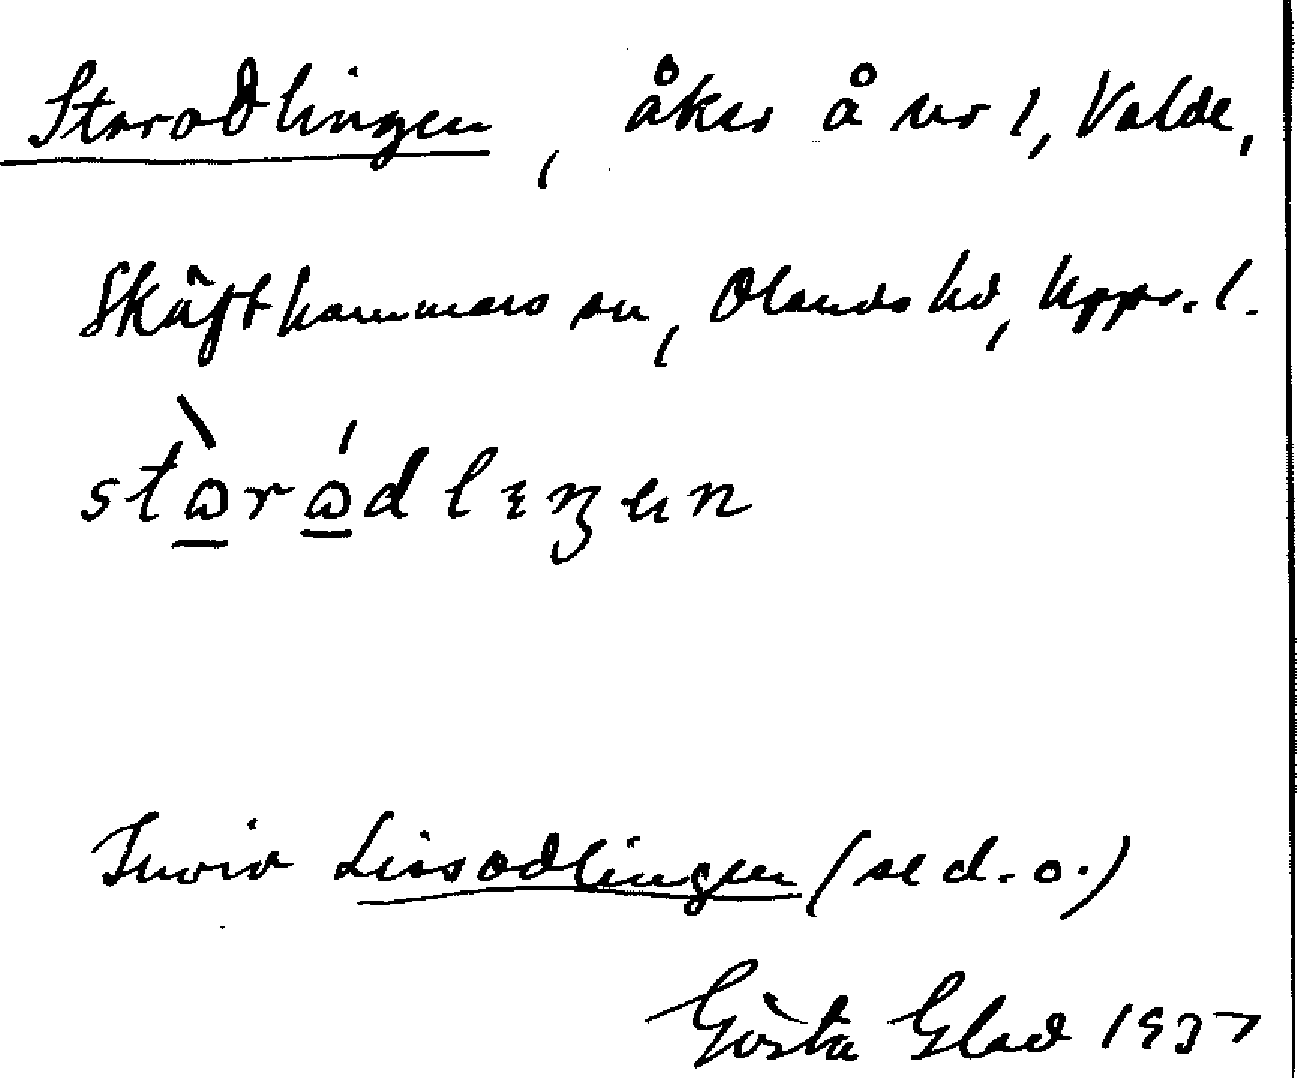 Storodlingen, åker å nr 1, Valde,
Skäfthammars sn, Olands hd, Uppr. l.
Invid Lissodlingen (se d. o.)
Gösta Glad 1937